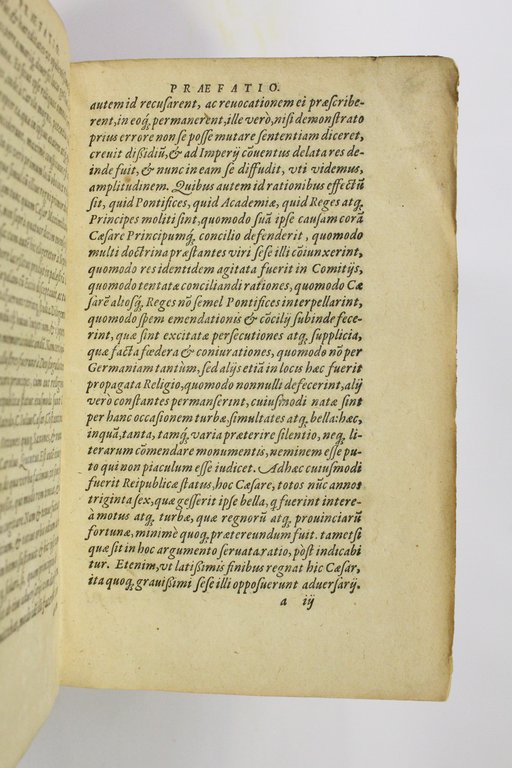 PRÆFATIO.
autem id recusarent, ac reuocationem ei præscribe-
rent, in eoq́; permanerent, ille verò, nisi demonstrato
prius errore non se posse mutare sententiam diceret,
creuit dißidiũ, & ad Imperÿ cõuentus delata res de-
inde fuit, & nunc in eam se diffudit, vti videmus,
amplitudinem. Quibus autem id rationibus effectũ
sit, quid Pontifices, quid Academiæ, quid Reges atq;
Principes moliti sint, quomodo suã ipse causam corã
Cæsare Principumq́; concilio defenderit, quomodo
multi doctrina præstantes viri sese illi cõiunxerint,
quomodo res identidem agitata fuerit in Comitijs,
quomodo tentatæ conciliandi rationes, quomodo Cæ
sarẽ aliosq́; Reges nõ semel Pontifices interpellarint,
quomodo spem emendationis & cõcilij subinde fece-
rint, quæ sint excitatæ persecutiones atq; supplicia,
quæ facta fœdera & coniurationes, quomodo nõ per
Germaniam tantùm, sed alijs etiã in locis hæc fuerit
propagata Religio, quomodo nonnulli defecerint, alij
verò constantes permanserint, cuiusmodi natæ sint
per hanc occasionem turbæ, simultates atq; bella: hæc,
inquã, tanta, tamq́; varia præterire silentio, neq; li-
terarum cõmendare monumentis, neminem esse pu-
to qui non piaculum esse iudicet. Ad hæc cuiusmodi
fuerit Reipublicæ status, hoc Cæsare, totos nũc annos
triginta sex, quæ gesserit ipse bella, q̃ fuerint intere-
à motus atq; turbæ, quæ regnorũ atq; prouinciarũ
fortunæ, minimè quoq; prætereundum fuit. tametsi
quæ sit in hoc argumento seruata ratio, pòst indicabi
tur. Etenim, vt latißimis finibus regnat hic Cæsar,
ita quoq; grauißimi sese illi opposuerunt aduersarij.
a iij